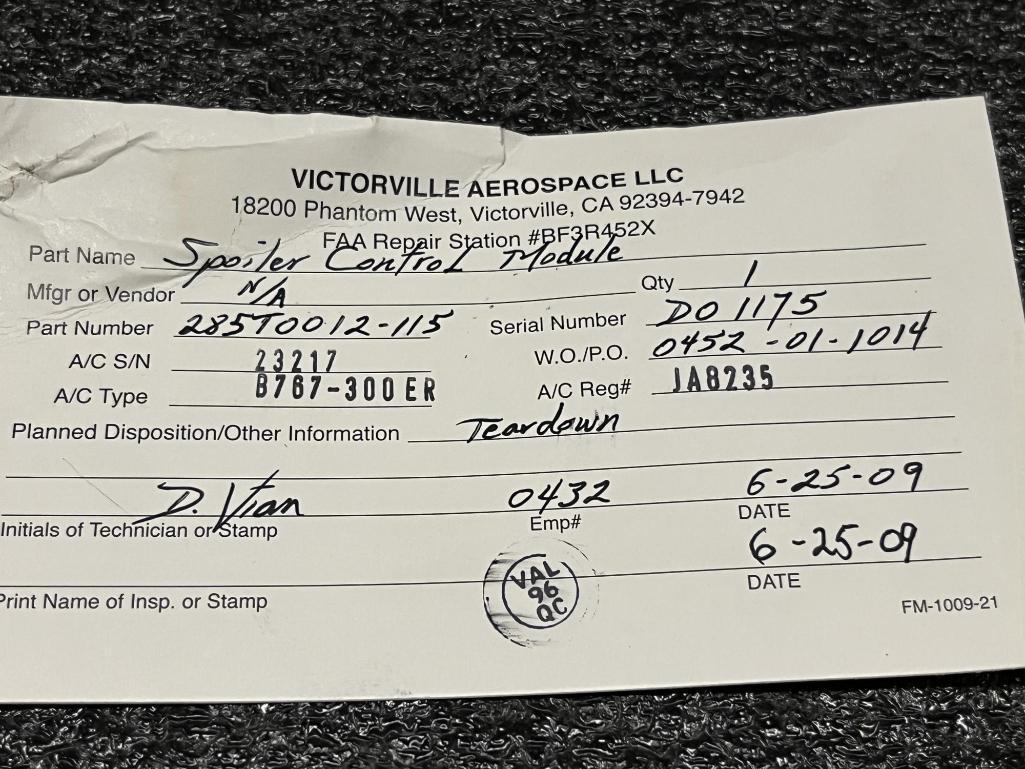 VICTORVILLE AEROSPACE LLC
18200 Phantom West, Victorville, CA 92394-7942
FAA Repair Station #BF3R452X
Part Name Spoiler Control Module
Mfgr or Vendor N/A Qty 1
Part Number 285T0012-115 Serial Number DO 1175
A/C S/N 23217 W.O./P.O. 0452-01-1014
A/C Type B767-300ER A/C Reg# JA8235
Planned Disposition/Other Information Teardown
D. Vian 0432 6-25-09
Initials of Technician or Stamp Emp# DATE
6-25-09
Print Name of Insp. or Stamp DATE
VAL
96
QC
FM-1009-21